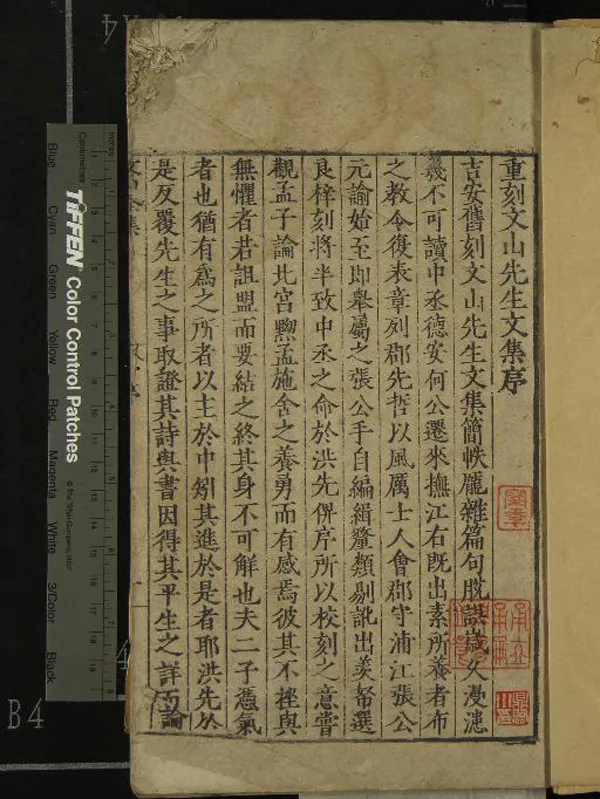 重刻文山先生文集序
吉安舊刻文山先生文集簡帙龐雜篇句脫誤歲久漫漶
幾不可讀中丞德安何公遷來撫江右既出素所養者布
之教令復表章列郡先哲以風厲士人會郡守浦江張公
元諭始至即舉屬之張公手自編緝釐類剔訛出羨帑選
良梓刻將半致中丞之命於洪先俾序所以校刻之意嘗
觀孟子論北宮黝孟施舍之養勇而有感焉彼其不挫與
無懼者若詛盟而要結之終其身不可解也夫二子憑氣
者也猶有為之所者以主於中矧其進於是者耶洪先於
是反覆先生之事取證其詩與書因得其平生之詳而論
B4
Centimetres
Inches
TIFFEN Color Control Patches
© The Tiffen Company, 2007
Blue
Cyan
Green
Yellow
Red
Magenta
White
3/Color
Black